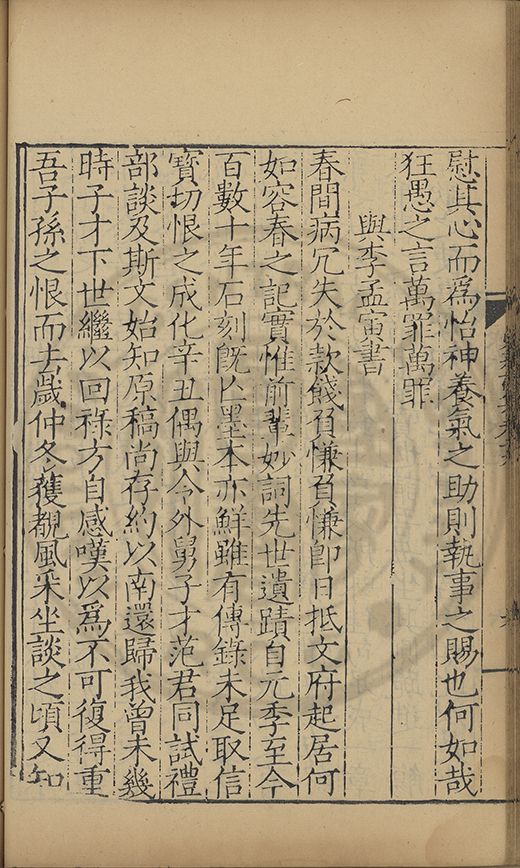 慰其心而爲怡神養氣之助則執事之賜也何如哉
狂愚之言萬罪萬罪
與李孟寅書
春間病冗失於款餞負慊負慊即日抵文府起居何
如容春之記實惟前輩妙詞先世遺蹟自元季至今
百數十年石刻旣亾墨本亦鮮雖有傳錄未足取信
寳切恨之成化辛丑偶與令外舅子才范君同試禮
部談及斯文始知原稿尚存約以南還歸我曾未幾
時子才下世繼以回祿方自感嘆以爲不可復得重
吾子孫之恨而去歲仲冬獲覩風采坐談之頃又知